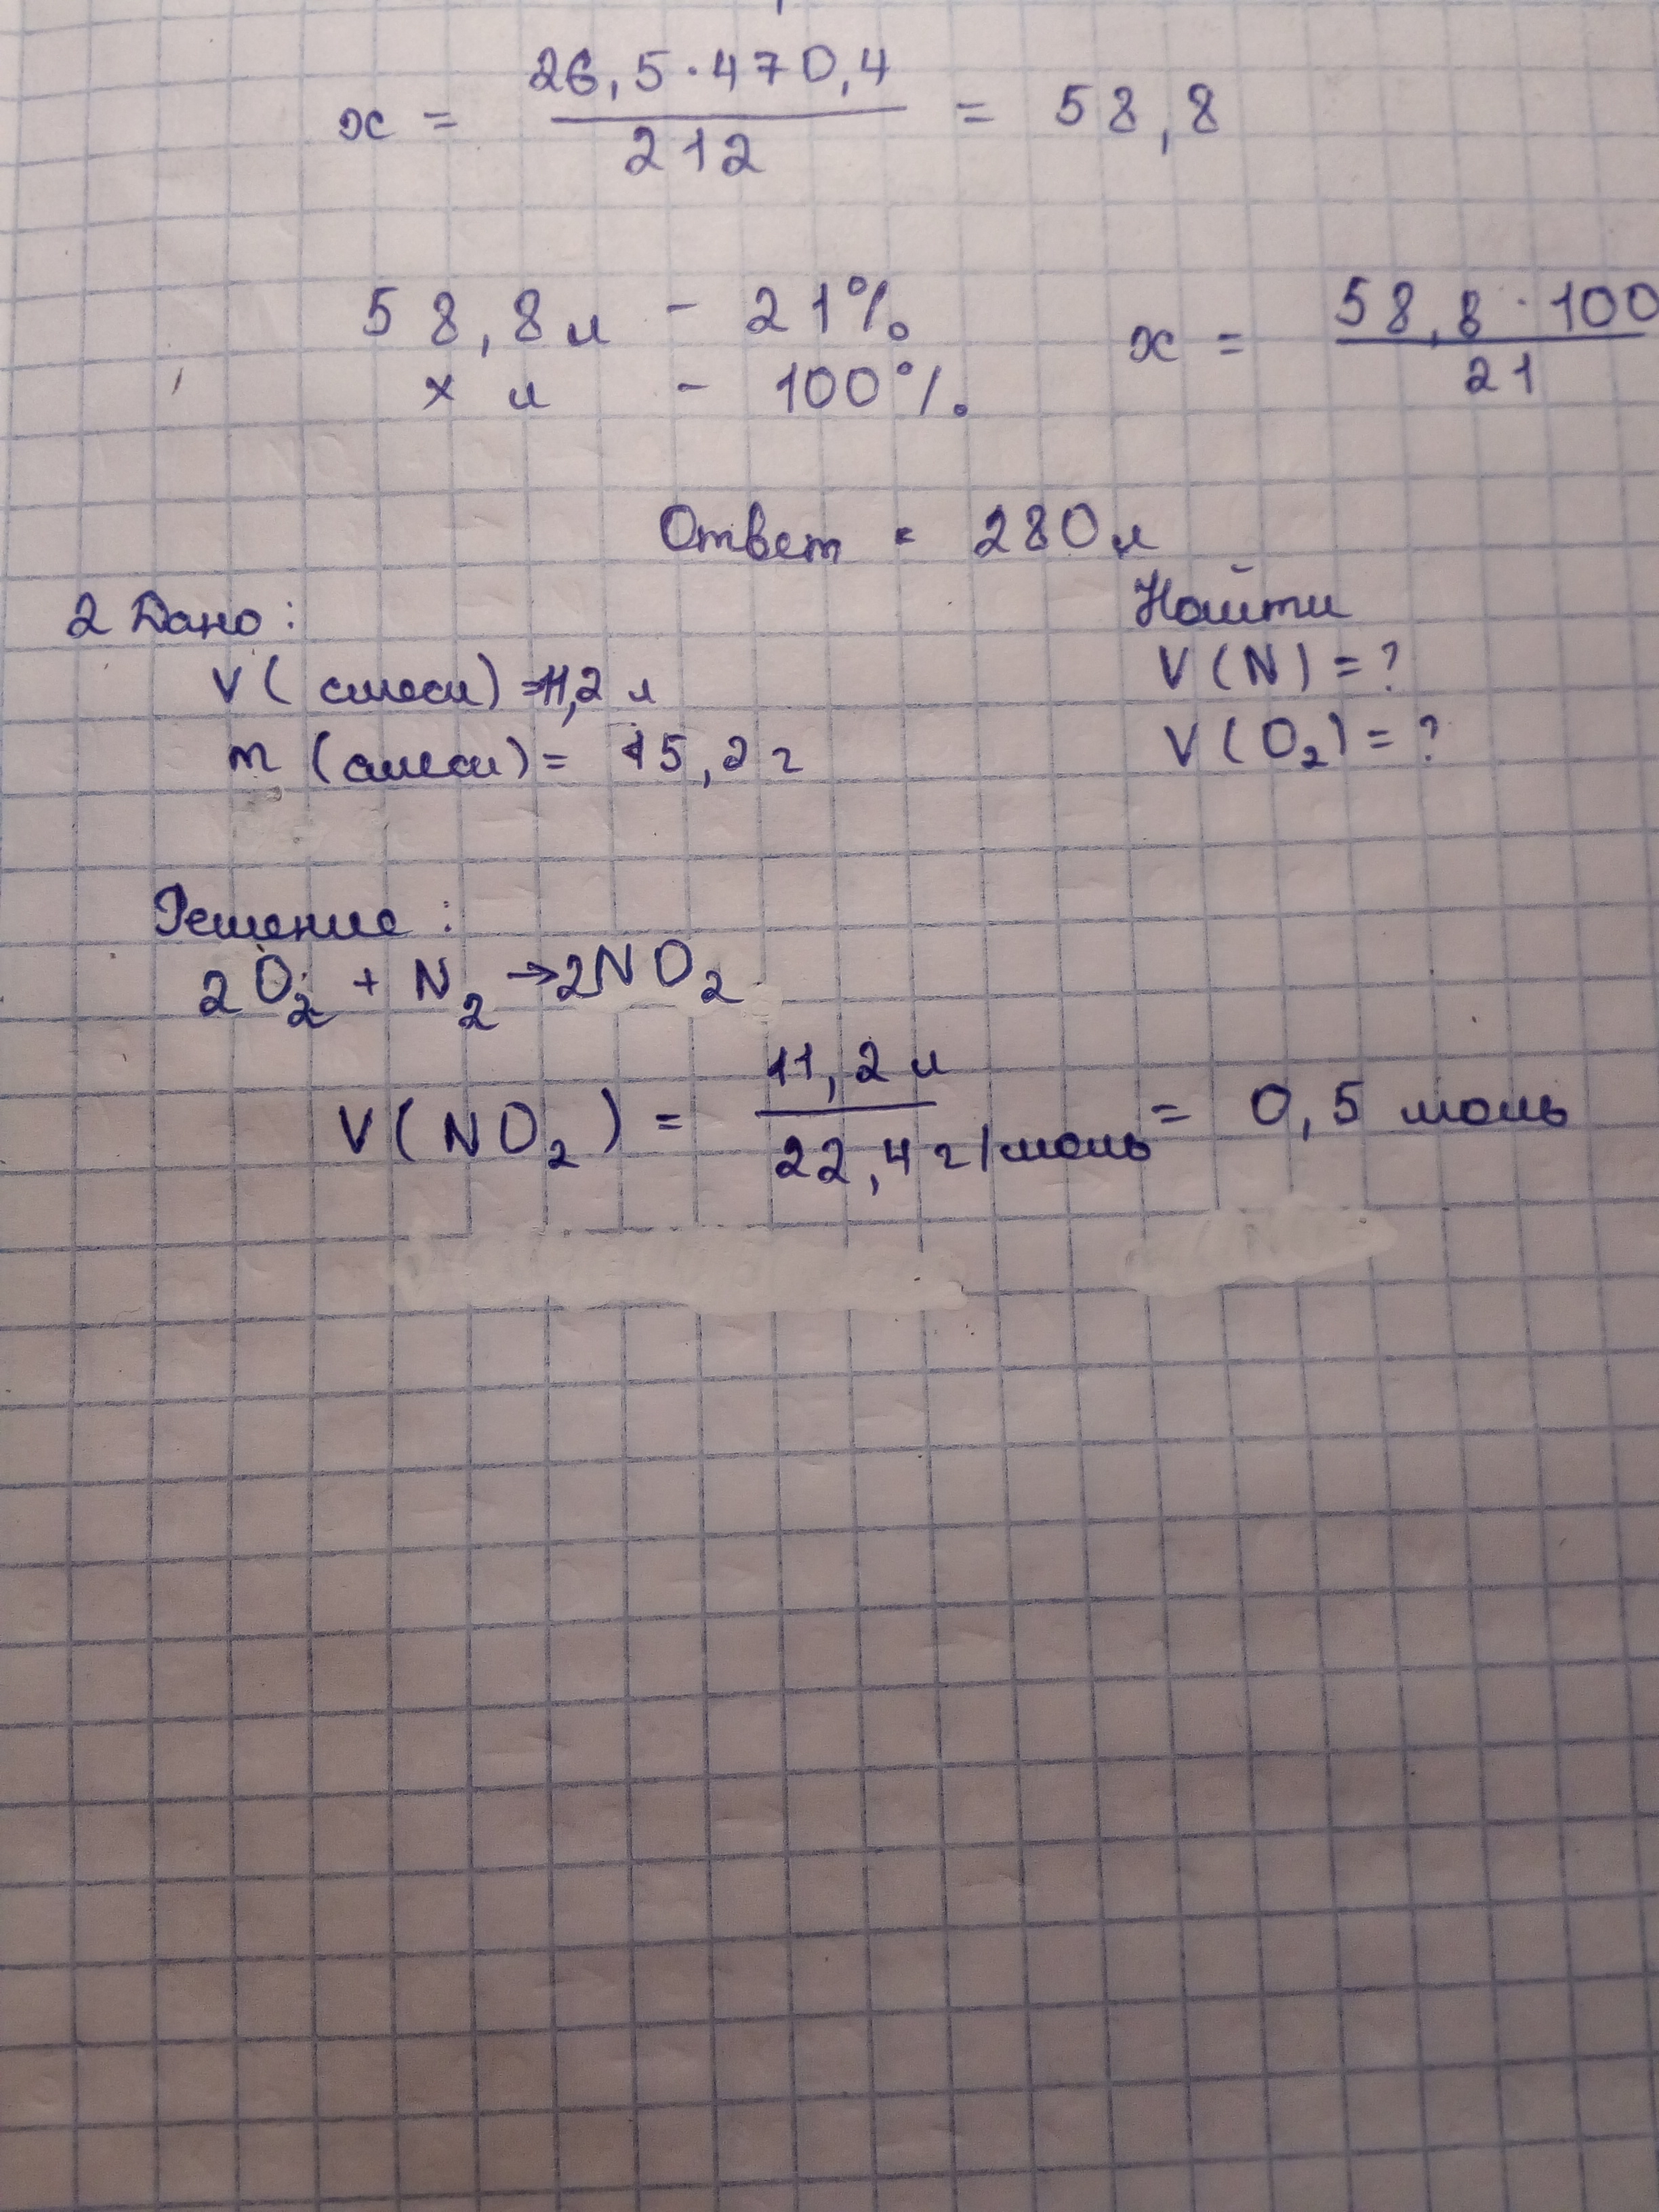 x = 26,5·470,4 / 212 = 58,8
58,8 л - 21% x = 58,8·100 / 21
x л - 100%
Ответ = 280 л
2 Дано: Найти
V (смеси) = 11,2 л V(N) = ?
m (смеси) = 15,2 г V(O₂) = ?
Решение:
2O₂ + N₂ → 2NO₂
V(NO₂) = 11,2 л / 22,4 г/моль = 0,5 моль